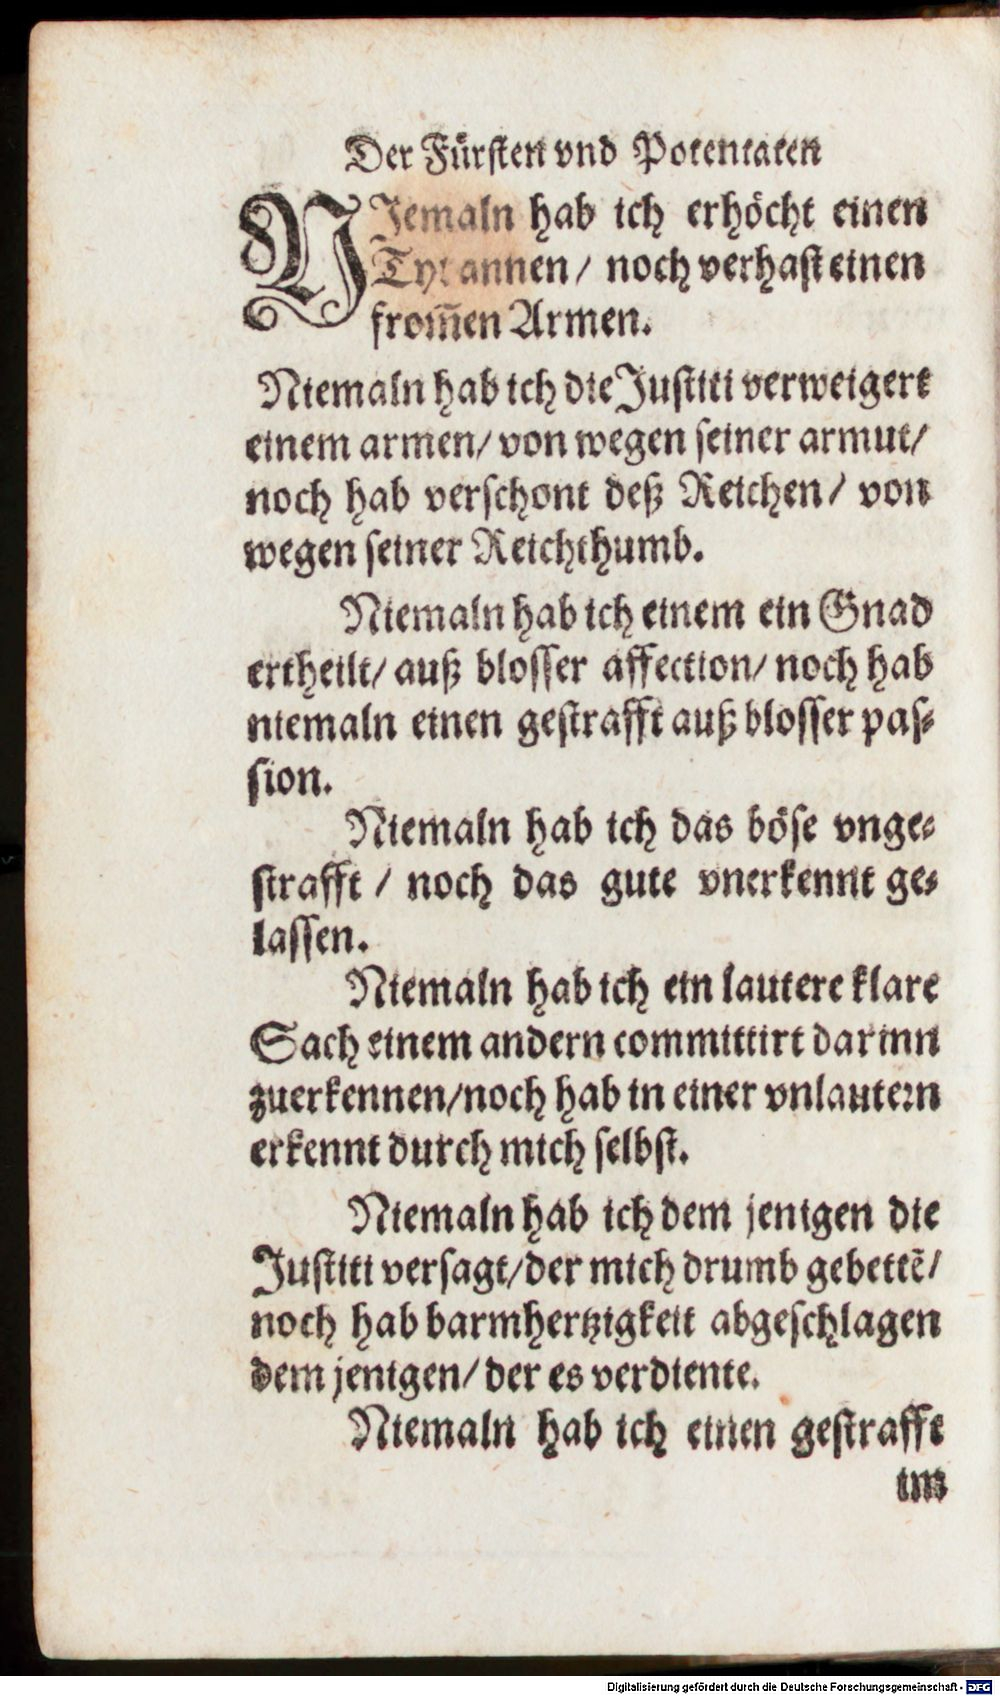 Der Fürſten vnd Potentaten
NJemaln hab ich erhöcht einen
Tyrannen/ noch verhaſt einen
from̃en Armen.
Niemaln hab ich die Juſtiti verweigert
einem armen/ von wegen ſeiner armut/
noch hab verſchont deß Reichen/ von
wegen ſeiner Reichthumb.
Niemaln hab ich einem ein Gnad
ertheilt/ auß bloſſer affection/ noch hab
niemaln einen geſtrafft auß bloſſer paſ⸗
ſion.
Niemaln hab ich das böſe vnge⸗
ſtrafft / noch das gute vnerkennt ge⸗
laſſen.
Niemaln hab ich ein lautere klare
Sach einem andern committirt darinn
zuerkennen/noch hab in einer vnlautern
erkennt durch mich ſelbſt.
Niemaln hab ich dem jenigen die
Juſtiti verſagt/der mich drumb gebettẽ/
noch hab barmhertzigkeit abgeſchlagen
dem jenigen/ der es verdiente.
Niemaln hab ich einen geſtrafft
im
Digitalisierung gefördert durch die Deutsche Forschungsgemeinschaft - DFG